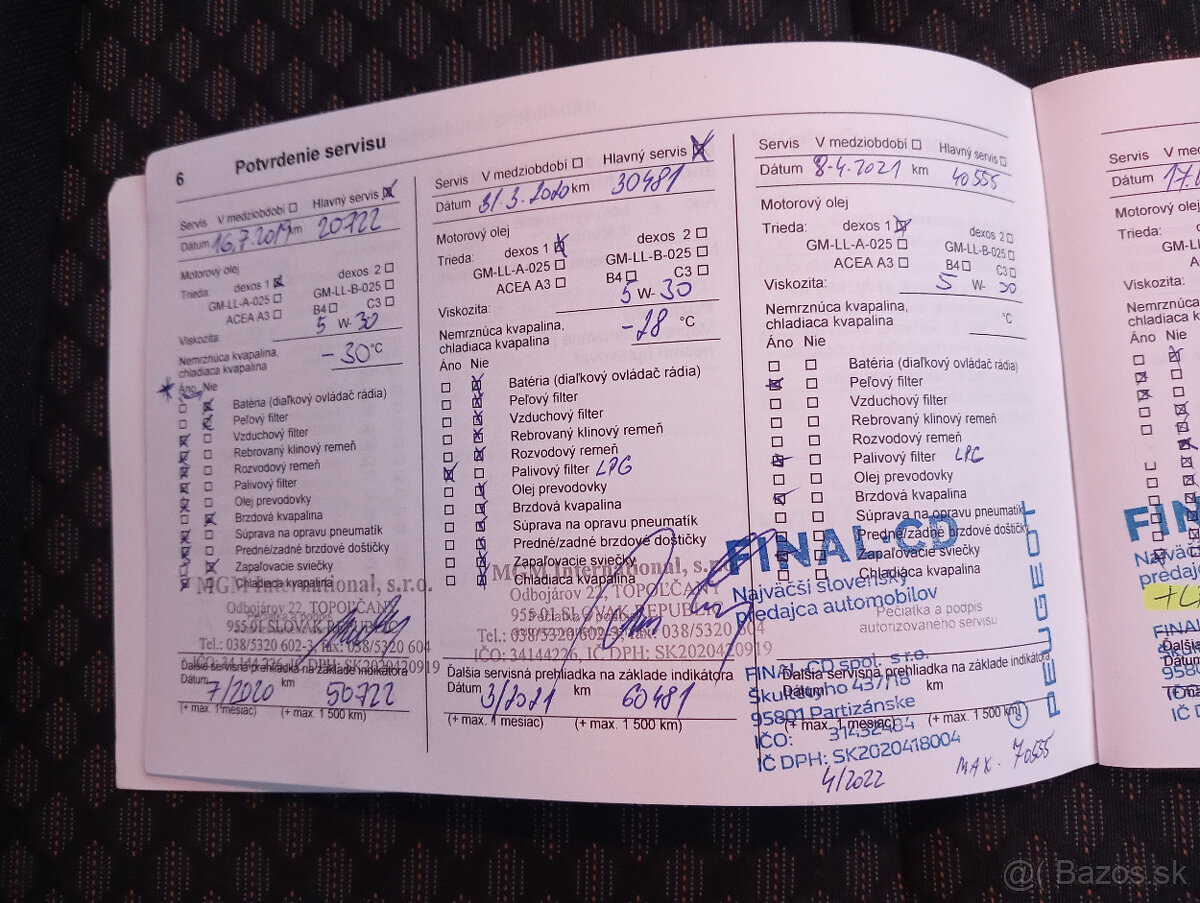 6 Potvrdenie servisu
Servis V medziobdobí Hlavný servis
Dátum 16.7.2019 km 20722
Motorový olej
Trieda: dexos 1 dexos 2
GM-LL-A-025 GM-LL-B-025
ACEA A3 B4 C3
Viskozita: 5 W- 30
Nemrznúca kvapalina,
chladiaca kvapalina -30 °C
Áno Nie
Batéria (diaľkový ovládač rádia)
Peľový filter
Vzduchový filter
Rebrovaný klinový remeň
Rozvodový remeň
Palivový filter
Olej prevodovky
Brzdová kvapalina
Súprava na opravu pneumatík
Predné/zadné brzdové doštičky
Zapaľovacie sviečky
Chladiaca kvapalina
MGM International, s.r.o.
Odbojárov 22, TOPOĽČANY
955 01 SLOVAK REPUBLIC
Tel.: 038/5320 602-3, fax: 038/5320 604
IČO: 34144226, IČ DPH: SK2020420919
Ďalšia servisná prehliadka na základe indikátora
Dátum 7/2020 km 50722
(+ max. 1 mesiac) (+ max. 1 500 km)
Servis V medziobdobí Hlavný servis
Dátum 31.3.2020 km 30481
Motorový olej
Trieda: dexos 1 dexos 2
GM-LL-A-025 GM-LL-B-025
ACEA A3 B4 C3
Viskozita: 5 W- 30
Nemrznúca kvapalina,
chladiaca kvapalina -28 °C
Áno Nie
Batéria (diaľkový ovládač rádia)
Peľový filter
Vzduchový filter
Rebrovaný klinový remeň
Rozvodový remeň
Palivový filter LPG
Olej prevodovky
Brzdová kvapalina
Súprava na opravu pneumatík
Predné/zadné brzdové doštičky
Zapaľovacie sviečky
Chladiaca kvapalina
MGM International, s.r.o.
Odbojárov 22, TOPOĽČANY
955 01 SLOVAK REPUBLIC
Tel.: 038/5320 602-3, fax: 038/5320 604
IČO: 34144226, IČ DPH: SK2020420919
Ďalšia servisná prehliadka na základe indikátora
Dátum 3/2021 km 60481
(+ max. 1 mesiac) (+ max. 1 500 km)
Servis V medziobdobí Hlavný servis
Dátum 8-4.2021 km 40555
Motorový olej
Trieda: dexos 1 dexos 2
GM-LL-A-025 GM-LL-B-025
ACEA A3 B4 C3
Viskozita: 5 W- 30
Nemrznúca kvapalina,
chladiaca kvapalina °C
Áno Nie
Batéria (diaľkový ovládač rádia)
Peľový filter
Vzduchový filter
Rebrovaný klinový remeň
Rozvodový remeň
Palivový filter LPG
Olej prevodovky
Brzdová kvapalina
Súprava na opravu pneumatík
Predné/zadné brzdové doštičky
Zapaľovacie sviečky
Chladiaca kvapalina
FINAL-CD
Najväčší slovenský
predajca automobilov
PEUGEOT
Pečiatka a podpis
autorizovaného servisu
FINAL-CD spol. s r.o.
Škultétyho 437/18
95801 Partizánske
IČO: 31432484
IČ DPH: SK2020418004
8
Ďalšia servisná prehliadka na základe indikátora
Dátum km
(+ max. 1 mesiac) (+ max. 1 500 km)
4/2022 MAX. 70555
Servis V me
Dátum 17.
Motorový o
Trieda:
GM-LL
ACE
Viskozita:
Nemrznúca
chladiaca kv
Áno Nie
FIN
Najväč
predaj
@( Bazos.sk